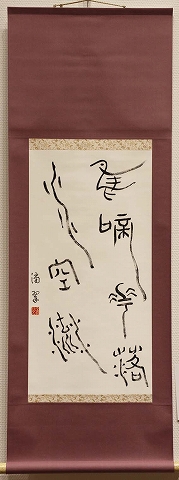 鳥啼花落
水空流